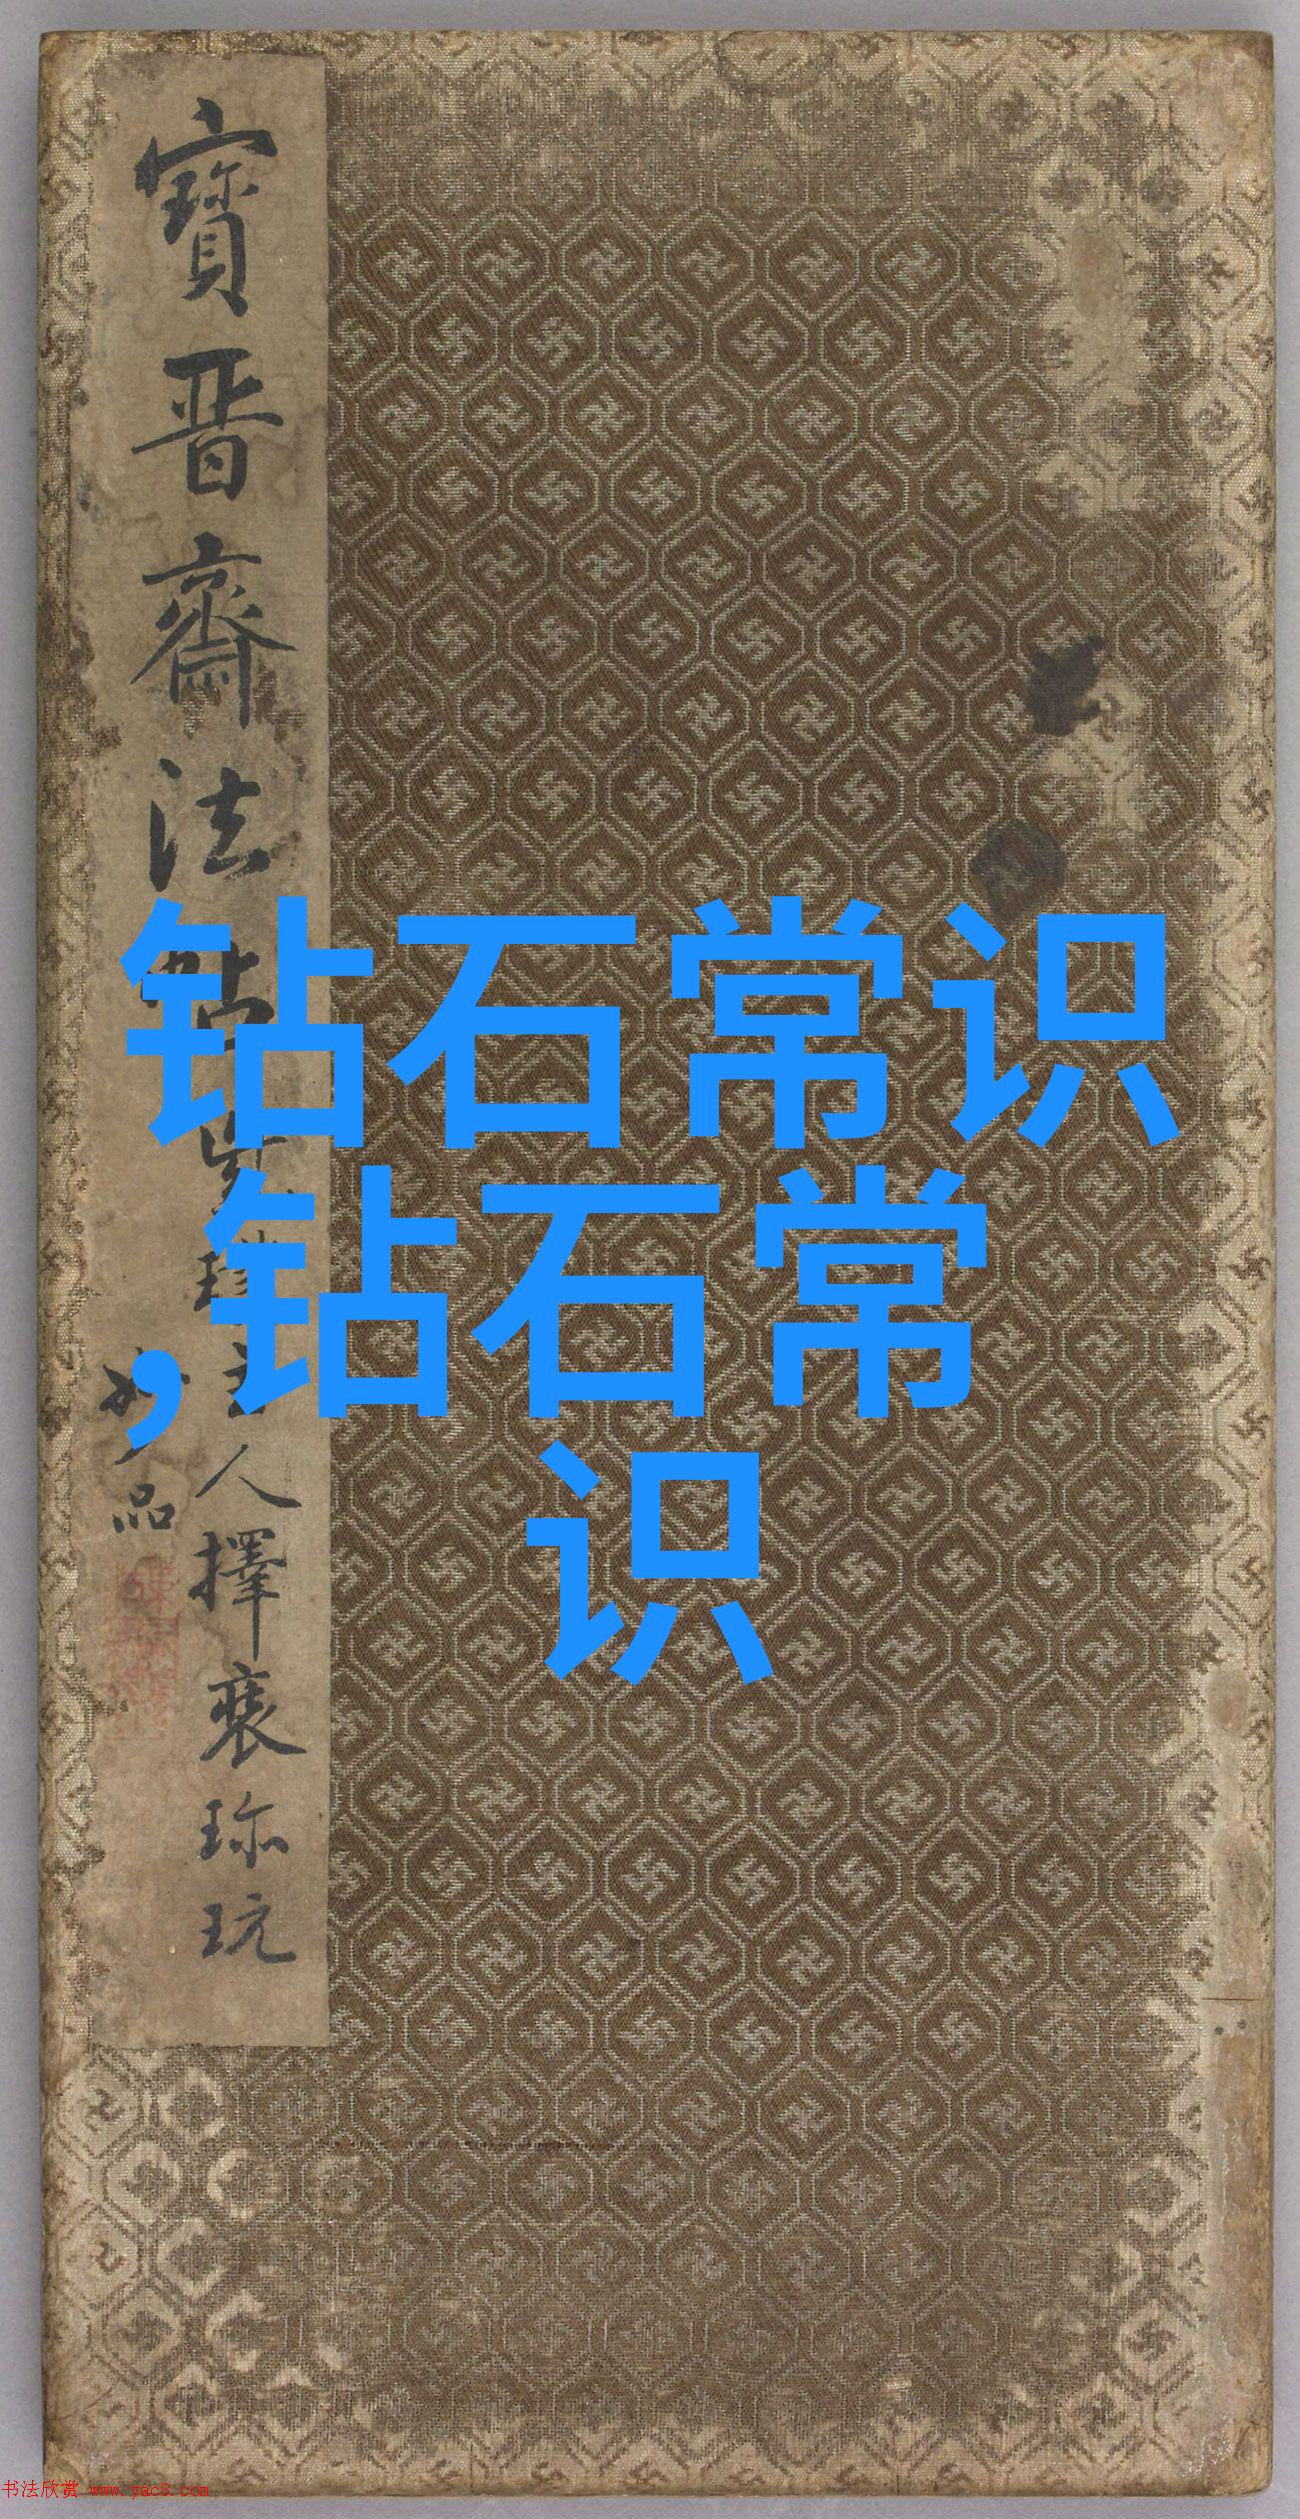 寶晉齋法帖
人擇裒珎玩
妙品
钻石常识
,钻石常
识
书法欣赏 www.yac8.com